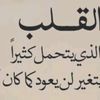 القلب
الذي يتحمل كثيراً
تغير لن يعود كما كان